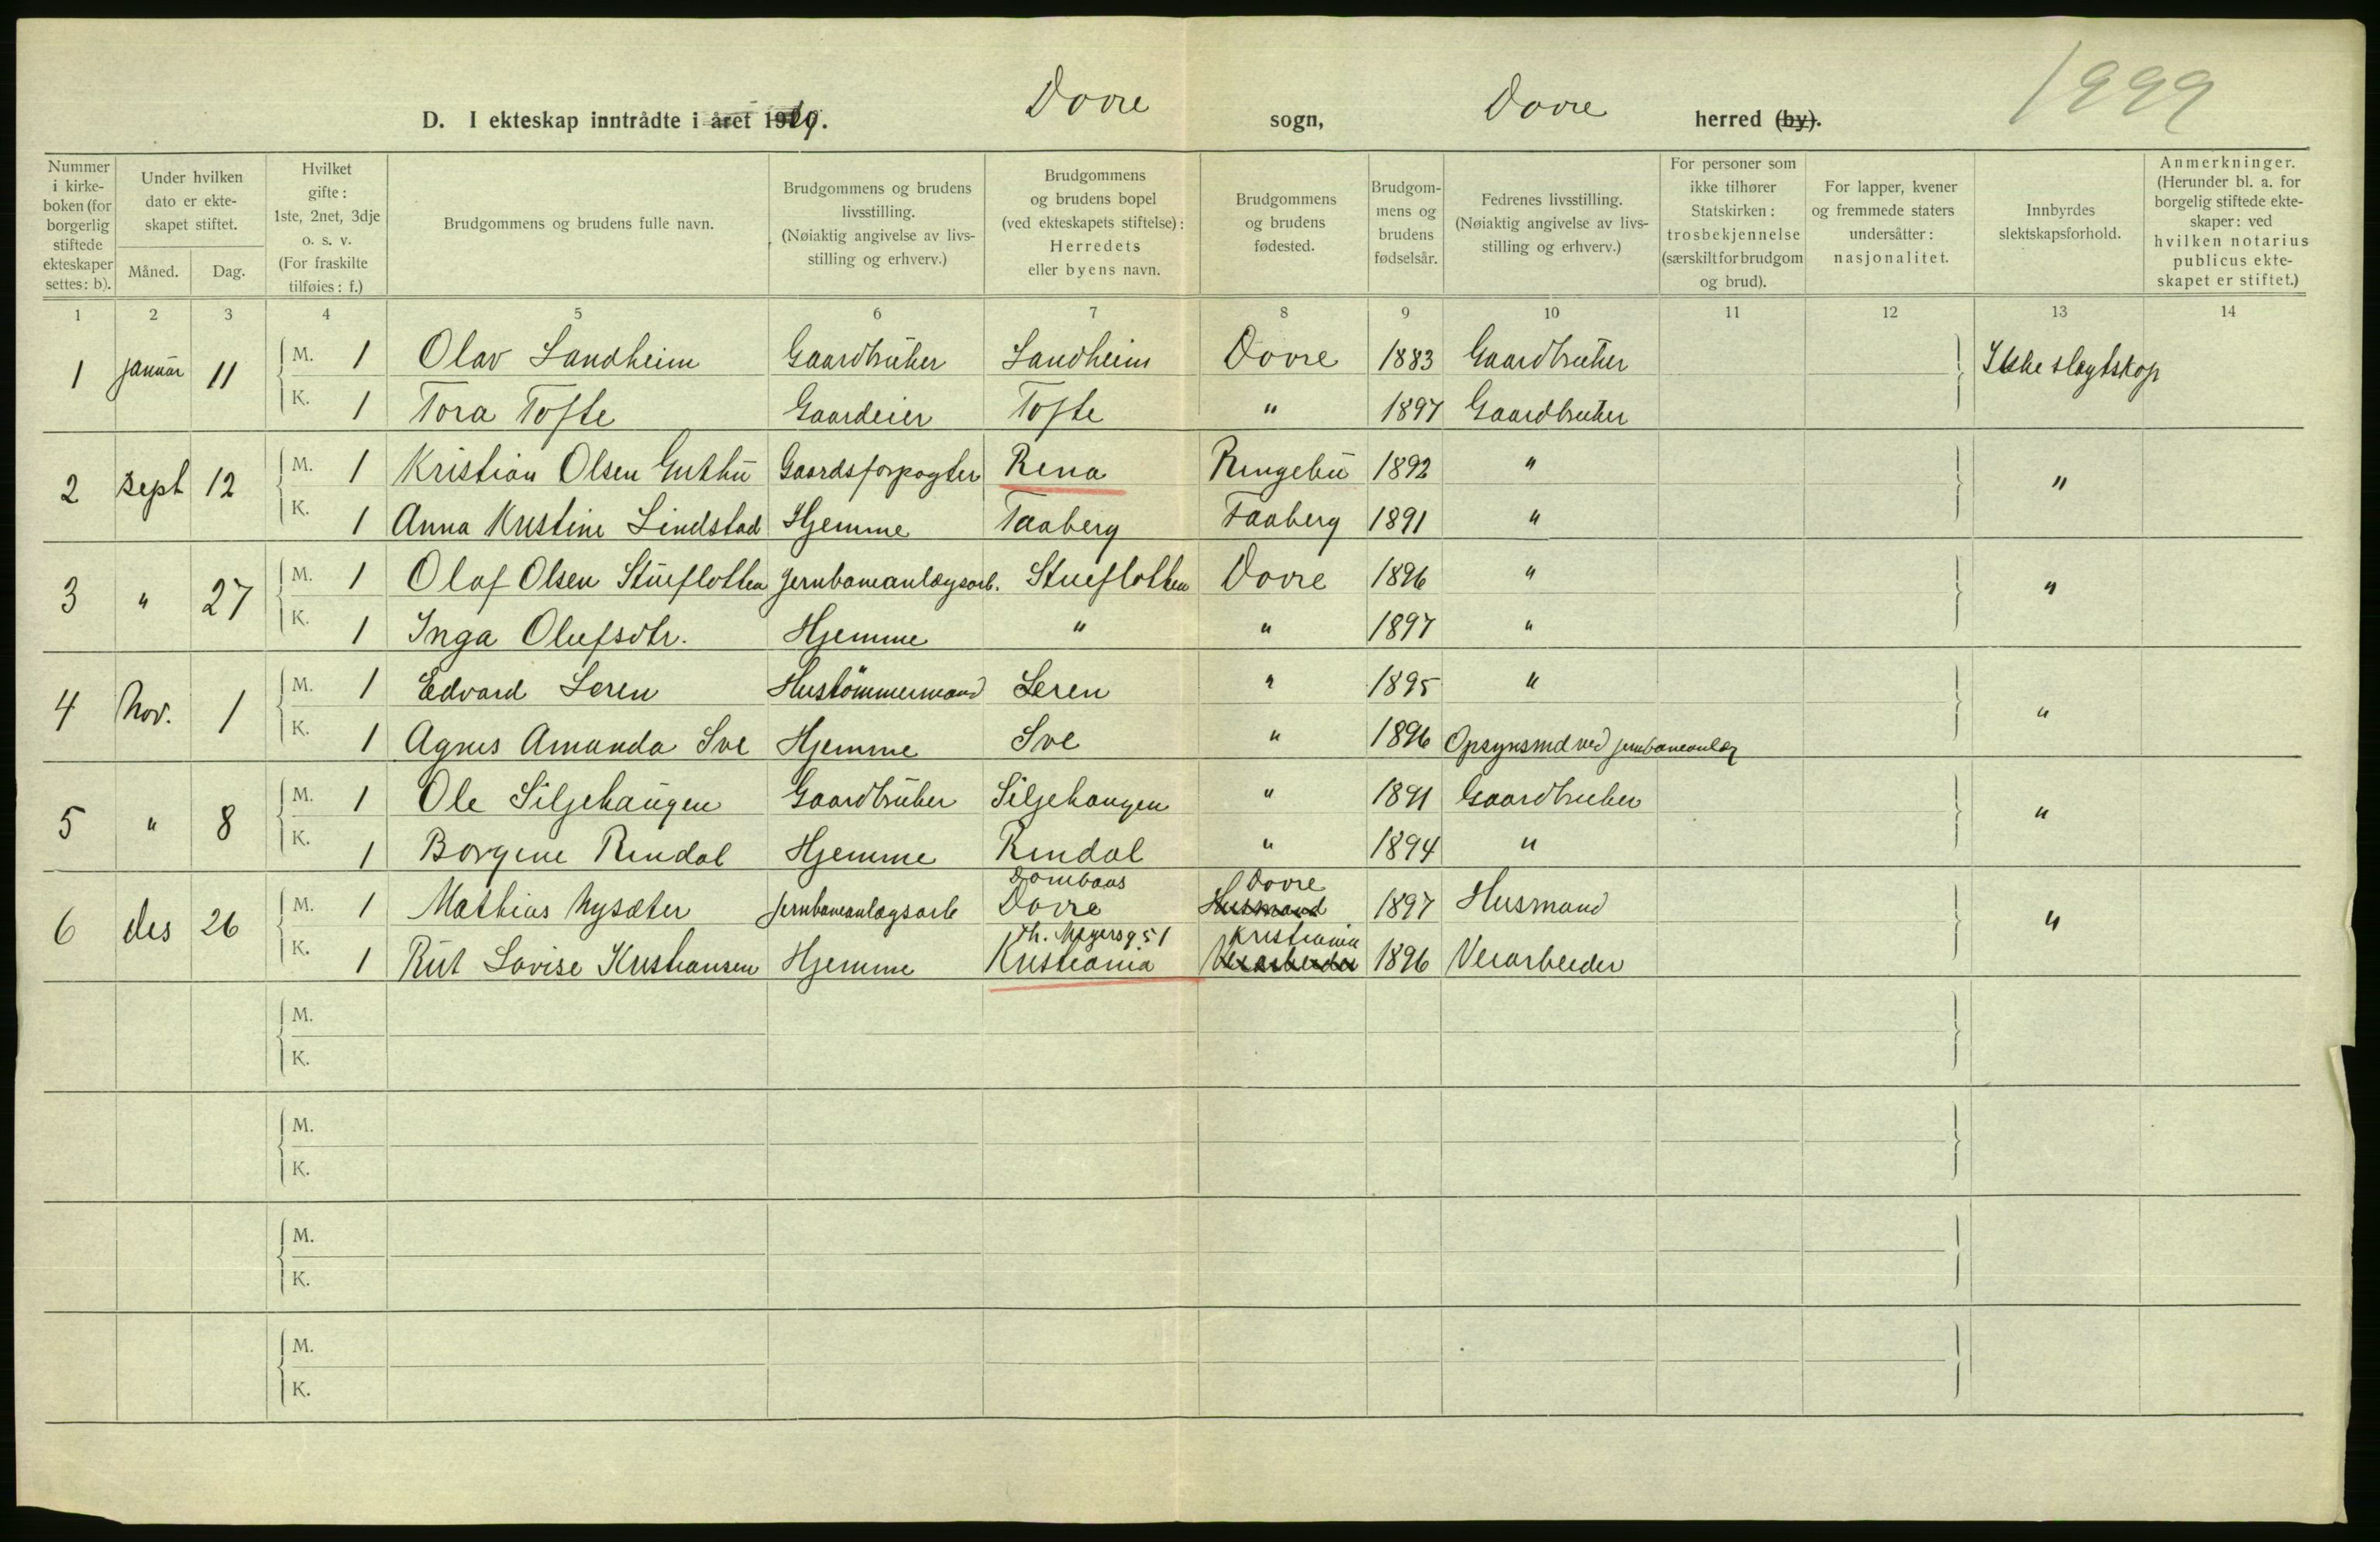 1999
D. I ekteskap inntrådte i året 1919. Dovre sogn, Dovre herred (by).
Nummer i kirkeboken (for borgerlig stiftede ekteskaper settes: b).
Under hvilken dato er ekteskapet stiftet.
Måned. Dag.
Hvilket gifte: 1ste, 2net, 3dje o. s. v. (For fraskilte tilføies: f.)
Brudgommens og brudens fulle navn.
Brudgommens og brudens livsstilling. (Nøiaktig angivelse av livsstilling og erhverv.)
Brudgommens og brudens bopel (ved ekteskapets stiftelse): Herredets eller byens navn.
Brudgommens og brudens fødested.
Brudgommens og brudens fødselsår.
Fedrenes livsstilling. (Nøiaktig angivelse av livsstilling og erhverv.)
For personer som ikke tilhører Statskirken: trosbekjennelse (særskilt for brudgom og brud).
For lapper, kvener og fremmede staters undersåtter: nasjonalitet.
Innbyrdes slektskapsforhold.
Anmerkninger. (Herunder bl. a. for borgelig stiftede ekteskaper: ved hvilken notarius publicus ekteskapet er stiftet.)
1 2 3 4 5 6 7 8 9 10 11 12 13 14
1 januar 11 M. 1 Olav Landheim Gaardbruker Landheim Dovre 1883 Gaardbruker Ikke slagtskap
K. 1 Tora Tofte Gaardeier Tofte " 1897 Gaardbruker
2 sept 12 M. 1 Kristian Olsen Guthu Gaardsforpagter Rena Ringebu 1892 " "
K. 1 Anna Kristine Lindstad Hjemme Faaberg Faaberg 1891 "
3 " 27 M. 1 Olaf Olsen Stueflotten Jernbaneanlægsarb. Stueflotten Dovre 1896 " "
K. 1 Inga Olufsdtr. Hjemme " " 1897 "
4 Nov. 1 M. 1 Edvard Leren Hustömmermand Leren " 1895 " "
K. 1 Agnes Amanda Sve Hjemme Sve " 1896 Opsynsmd ved jernbaneanlæg
5 " 8 M. 1 Ole Siljehaugen Gaardbruker Siljehaugen " 1891 Gaardbruker "
K. 1 Borgine Rindal Hjemme Rindal " 1894 "
Dombaas Dovre
6 des 26 M. 1 Mathias Nysæter Jernbaneanlægsarb Dovre Husmand 1897 Husmand "
Th. Meyersg. 51 Kristiania
K. 1 Rut Lovise Kristiansen Hjemme Kristiania Verarbeider 1896 Verarbeider
M.
K.
M.
K.
M.
K.
M.
K.